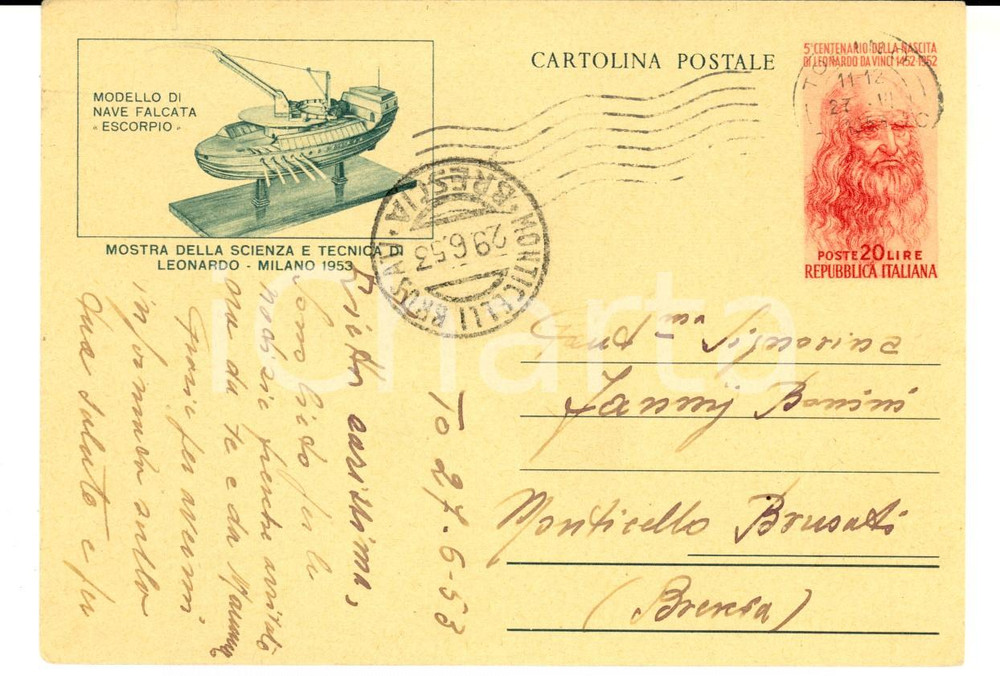 MODELLO DI
NAVE FALCATA
« ESCORPIO »
MOSTRA DELLA SCIENZA E TECNICA DI
LEONARDO - MILANO 1953
CARTOLINA POSTALE
5° CENTENARIO DELLA NASCITA
DI LEONARDO DA VINCI 1452-1952
POSTE 20 LIRE
REPUBBLICA ITALIANA
11-12
27 VI
MONTICELLI BRUSATI
BRESCIA
29.6.53
iCharta
Gent.ma Sig.
Fanny Bonini
Monticello Brusati
(Brescia)
To 27-6-53
carissima,
sono lieto per le
notizie
ora da te e da Mamma
Grazie per avermi
una saluto e